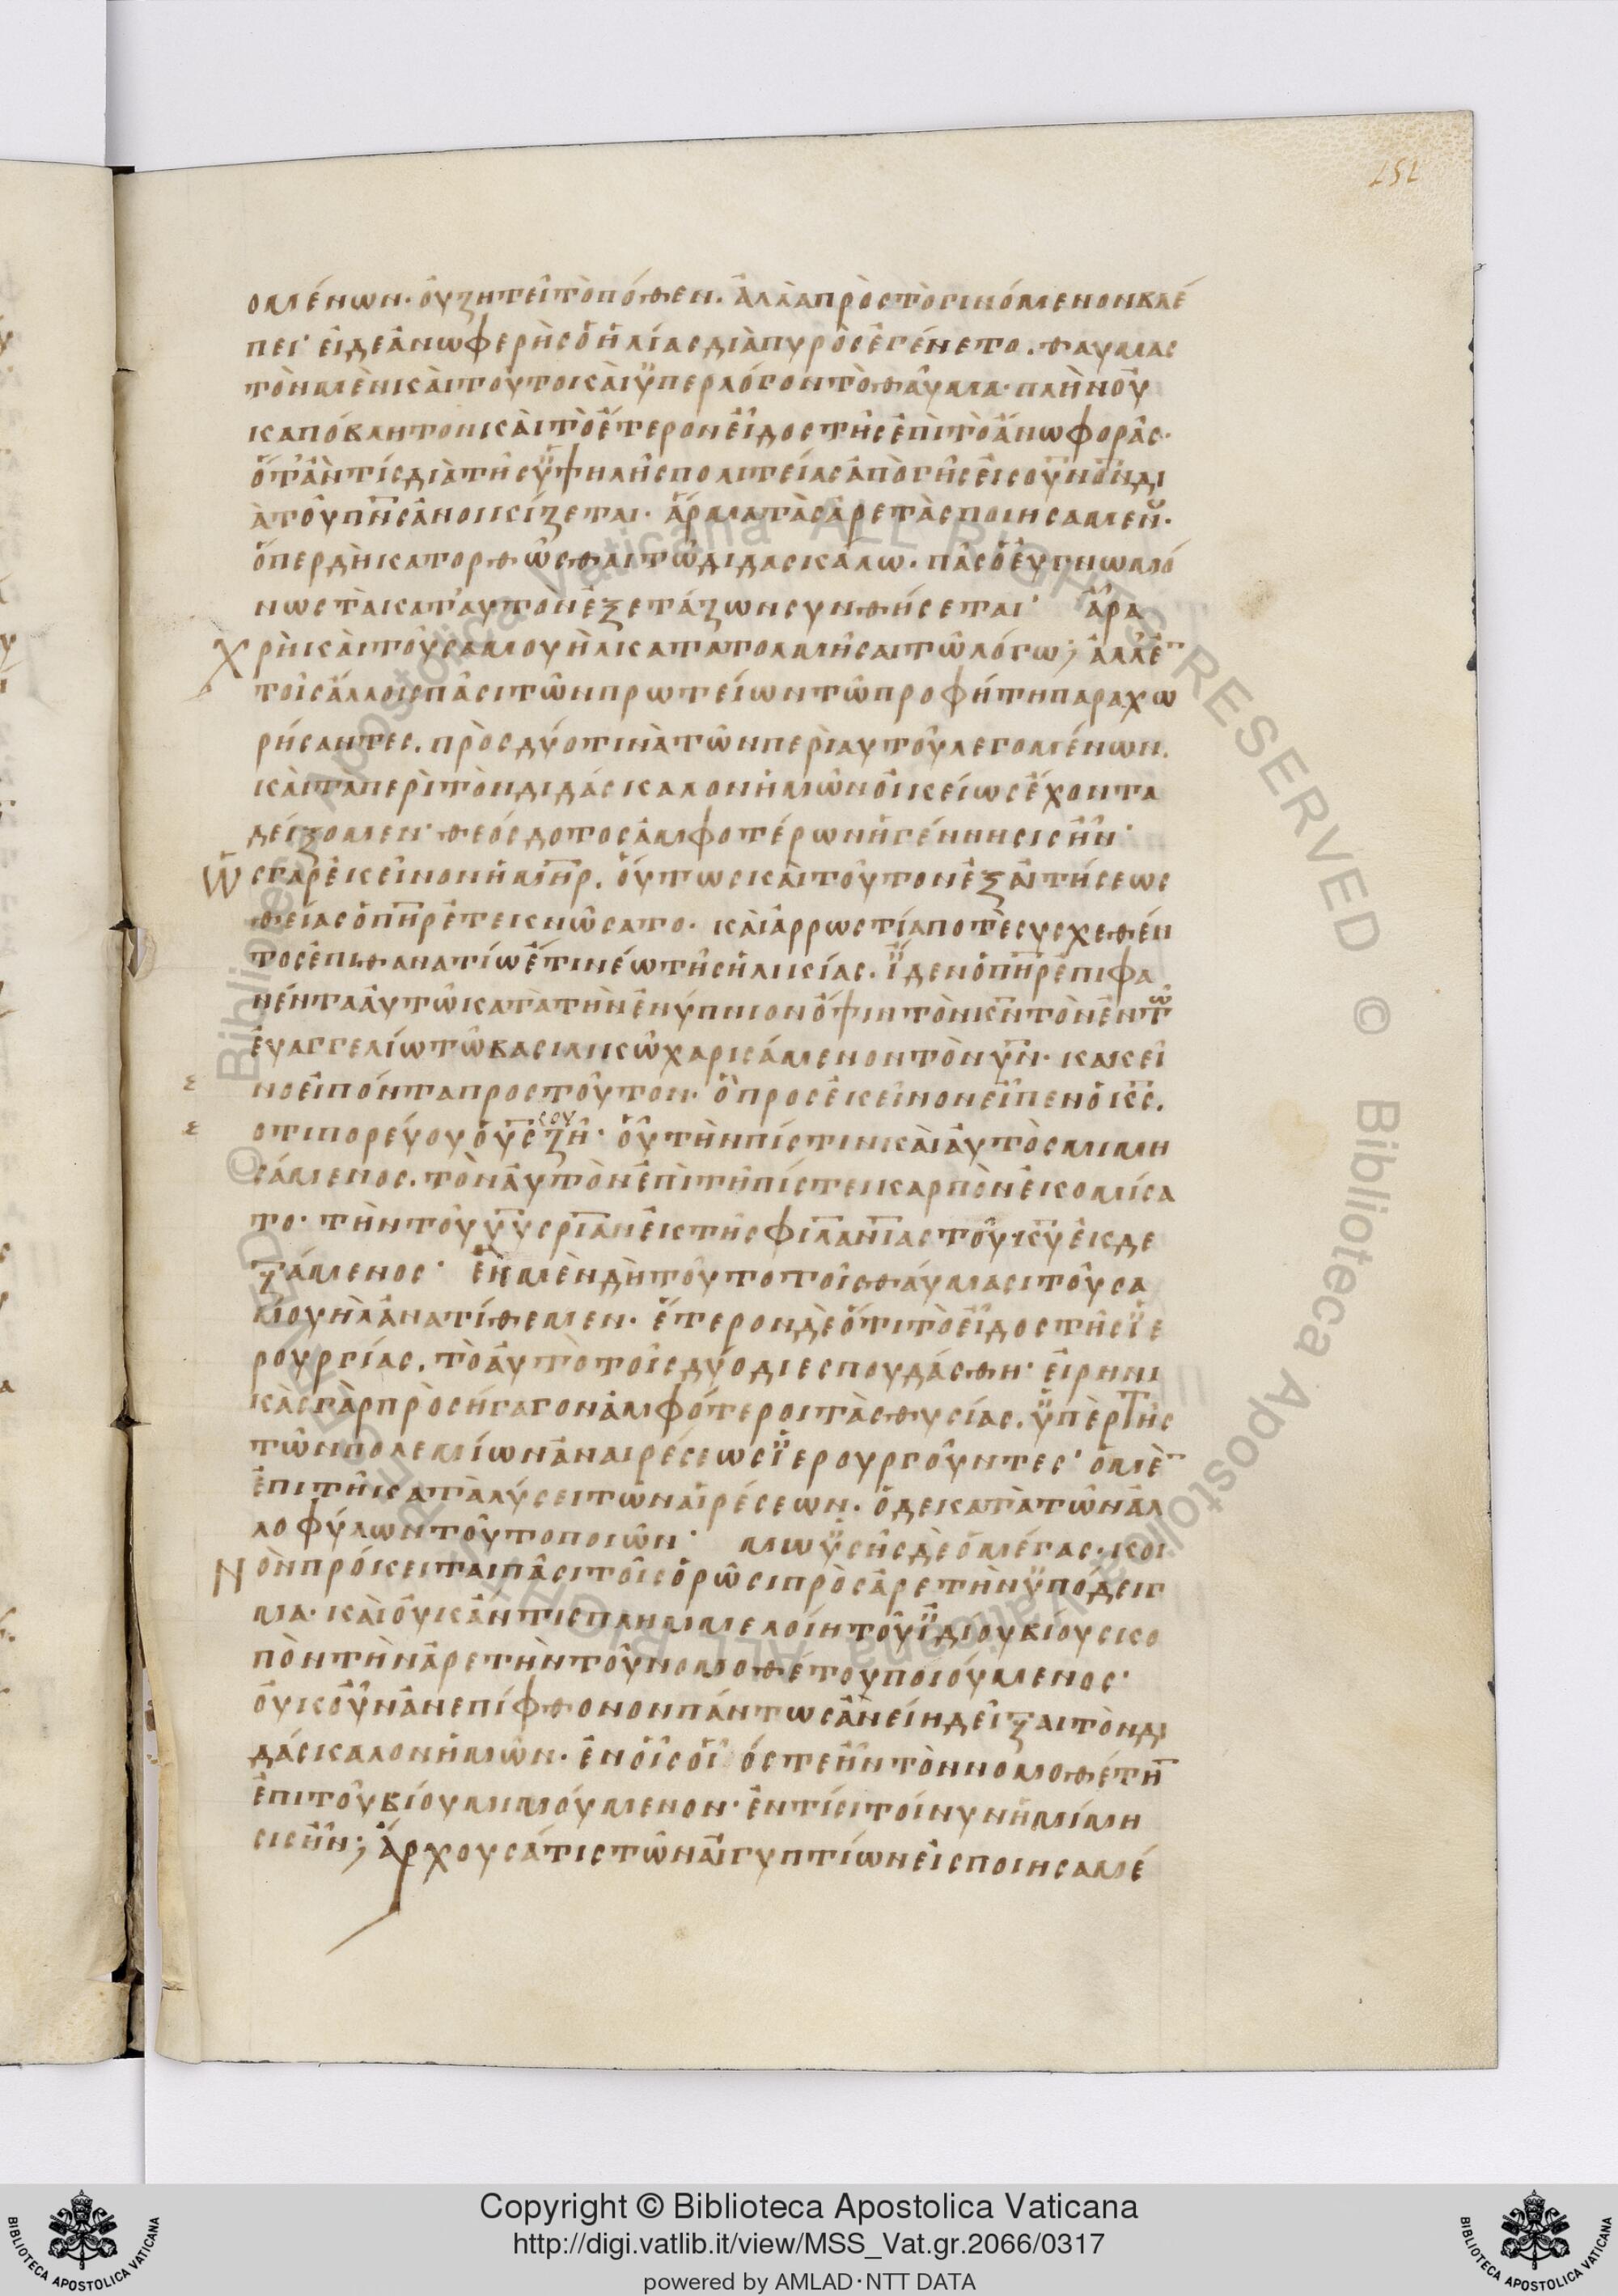 151
ομένων· οὐ ζητεῖ τὸ πόθεν. ἀλλὰ πρὸς τὸ γινόμενον βλέ
πει· εἰ δὲ ἀνωφερὴς ὁ ἡλίας διὰ πυρὸς ἐγένετο. θαυμας
τὸν μὲν καὶ τοῦτο καὶ ὑπερ λόγον τὸ θαῦμα· πλὴν οὐ
κ ἀπόβλητον καὶ τὸ ἕτερον εἶδος τῆς ἐπὶ τὸ ἄνω φορᾶς·
ὅτ' ἄν τίς διὰ τῆς ὑψηλῆς πολιτείας ἀπὸ γῆς εἰς οὐνὸν δι
ὰ τοῦ πνς ἀνοικίζεται· ἅρμα τὰς ἀρετὰς ποιησαμεν·
ὅπερ δὴ κατορθῶσθαι τῶ διδασκάλω· πᾶς ὁ εὐγνωμό
νως τὰ κατ' αυτὸν ἐξετάζων συνθήσεται· ἄρα
χρὴ καὶ τοῦ σαμουὴλ κατατολμῆσαι τῶ λόγω; ἀλλ' ἐ
τοῖς ἄλλοις πᾶσι τῶν πρωτείων τῶ προφήτη παραχω
ρήσαντες. πρὸς δύο τινὰ τῶν περὶ αυτοῦ λεγομένων.
καὶ τὰ περὶ τὸν διδάσκαλον ἡμῶν οἰκείως ἔχοντα
δείξομεν· θεόσδοτος ἀμφοτέρων ἡ γέννησις ἦν·
ὥς γὰρ ἐκεῖνον ἡ μηρ. οὕτως καὶ τοῦτον ἐξ αἰτήσεως
θείας ὁ πηρ ἐτεκνώσατο· καὶ ἀρρωστία ποτὲ συσχεθέν
τος ἐπιθανατίω ἔτι νέω τῆς ἡλικίας. ἴδεν ὁ πηρ ἐπιφα
νέντα αὐτῶ κατὰ τὴν ἐνύπνιον ὄψιν τὸν κν τὸν ἐν τῶ
ἐυαγγελίω τῶ βασιλικῶ χαρισάμενον τὸν υν· κἀκεῖ
νο εἰπόντα προς τοῦτον· ὃ προς ἐκεῖνον εἶπεν ὁ κς.
οτι πορεύου ὁ υς σου ζῆ· οὗ τὴν πίστιν καὶ αὐτὸς μιμη
σάμενος. τὸν ἀυτὸν ἐπὶ τῆ πίστει καρπὸν ἐκομίσα
το· τὴν τοῦ υυ σριαν ἐκ τῆς φιλανιας τοῦ κυ ἐκδε
ξάμενος· ἓν μὲν δὴ τοῦτο τοῖς θάυμασι τοῦ σα
μουὴλ ἀνατίθεμεν· ἕτερον δὲ ὅτι τὸ εἶδος τῆς ἱε
ρουργίας. τὸ ἀυτὸ τοῖς δύο διεσπουδάσθη· εἰρηνι
κὰς γὰρ πρὸσήγαγον ἀμφότεροι τὰς θυσίας. ὑπὲρ τῆς
τῶν πολεμίων ἀναιρέσεως ἱερουργοῦντες· ὁ μὲ
ἐπι τῆ καταλύσει τῶν αἱρέσεων. ὁ δε κατὰ τῶν ἀλ
λοφύλων τοῦτο ποιῶν· μωϋσῆς δὲ ὁ μέγας· κοι
Νὸν πρόκειται πᾶσι τοῖς ὁρῶσι πρὸς ἀρετὴν ὑπόδειγ
μα· καὶ οὐκ ἄν τις πλημμελοίη τοῦ ἰδίου βίου σκο
πὸν τὴν ἀρετὴν τοῦ νομοθέτου ποιούμενος·
οὐκοῦν ἀνεπίφθονον πάντως ἂν εἴη δεῖξαι τὸν δι
δάσκαλον ἡμῶν. ἐν οἷς οἷόςτε ἦν τὸν νομοθέτη
ἐπι τοῦ βίου μιμούμενον· ἐν τίσι τοίνυν ἡ μίμη
σις ἦν; ἄρχουσά τις τῶν αἰγυπτίων εἰσποιησαμέ
Copyright © Biblioteca Apostolica Vaticana
http://digi.vatlib.it/view/MSS_Vat.gr.2066/0317
powered by AMLAD·NTT DATA